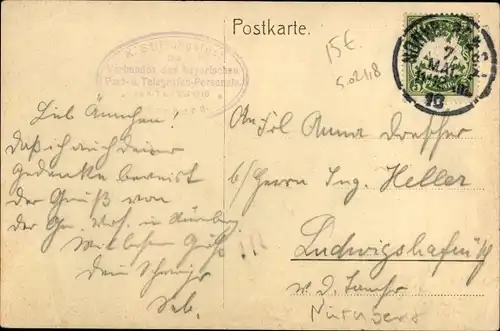 Postkarte.
15€
5.0218
X. Stiftungsfest
des
Verbandes des bayerischen
Post- u. Telegrafen-Personals
NÜRNBERG
7
MAI
10
5
Lieb Ännchen!
Daß ich auch Deiner
gedenke beweist
der Gruß von
der in Nürnberg.
Mit besten Grüß
Dein
An Frl Anna
b/ Herrn Ing. Heller
Ludwigshafen
a. d.
Nürnberg